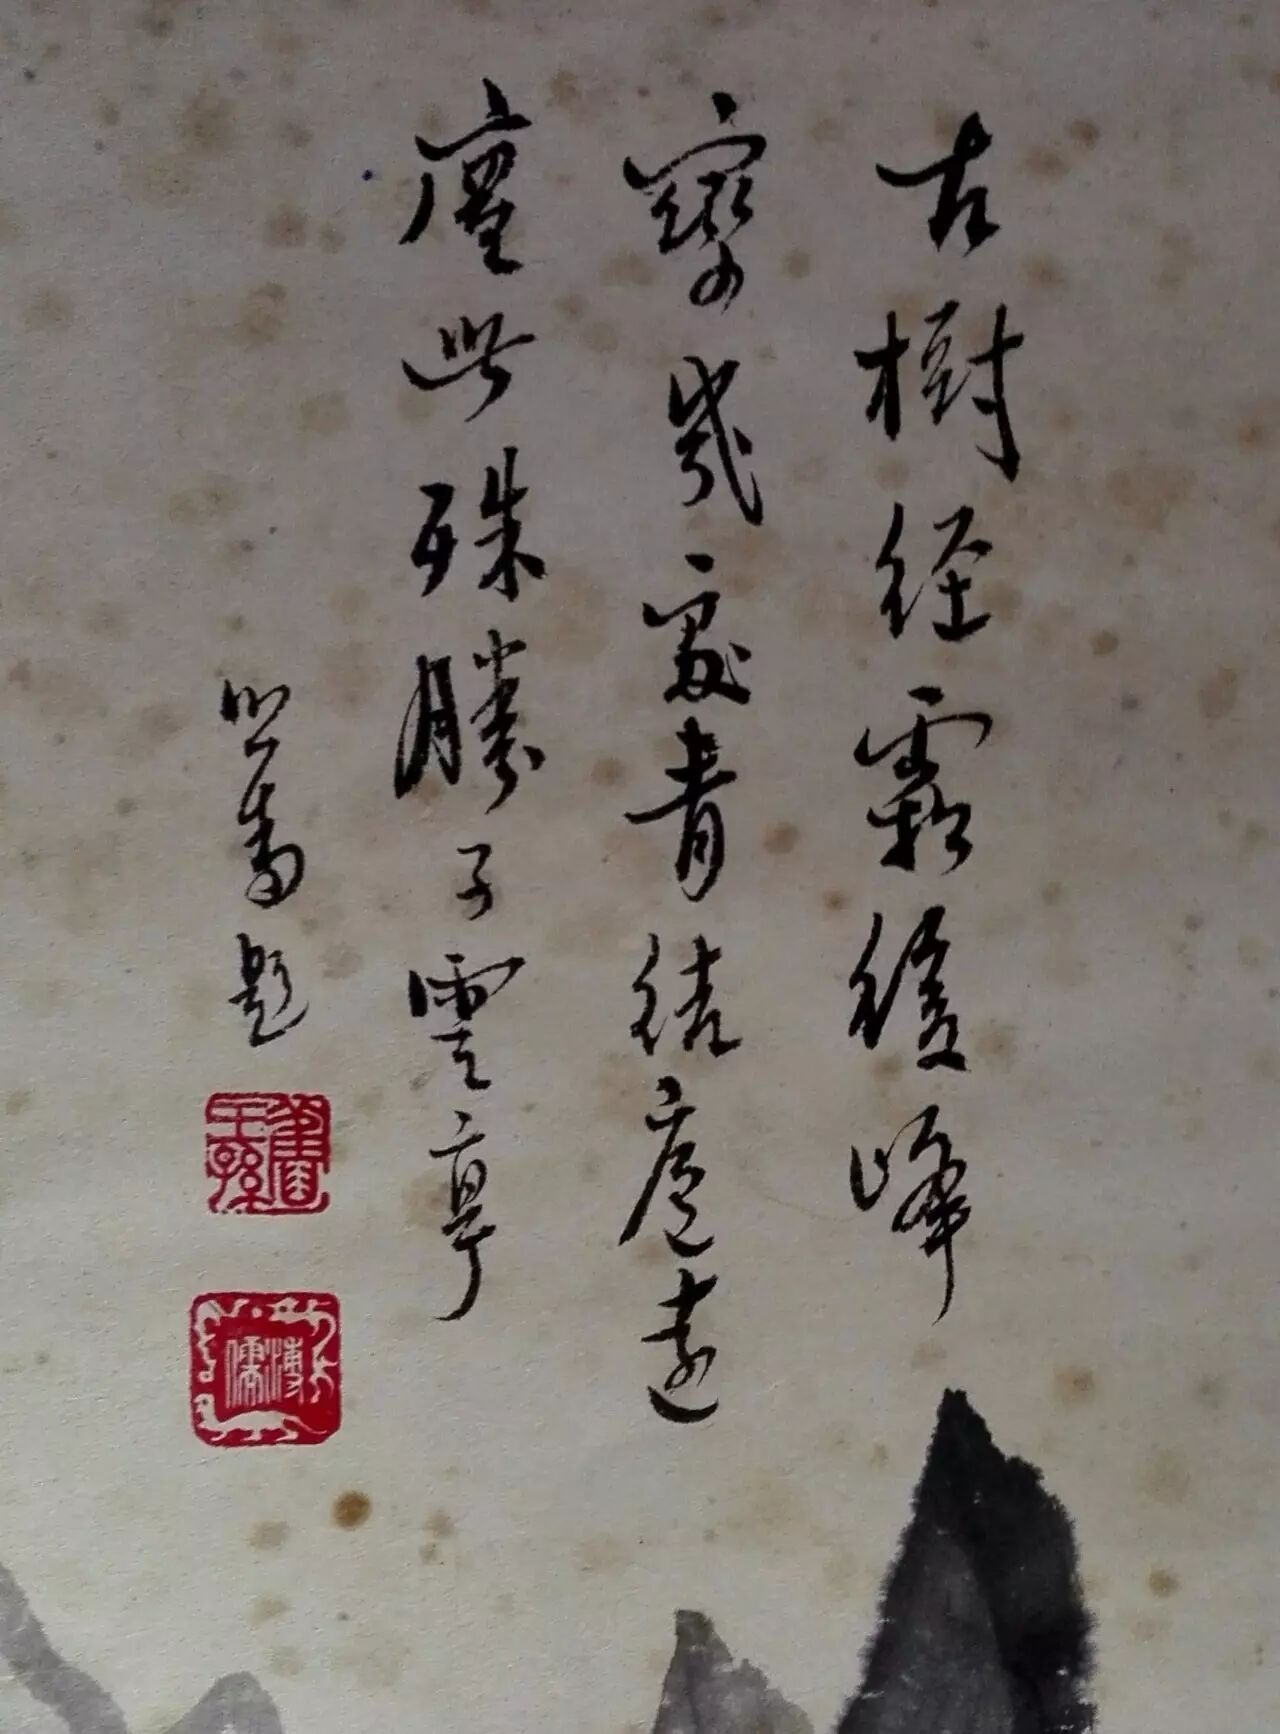 古樹經霜後峰
巒幾處青結廬遠
塵此殊勝子雲亭
心畬題
舊王孫
溥儒